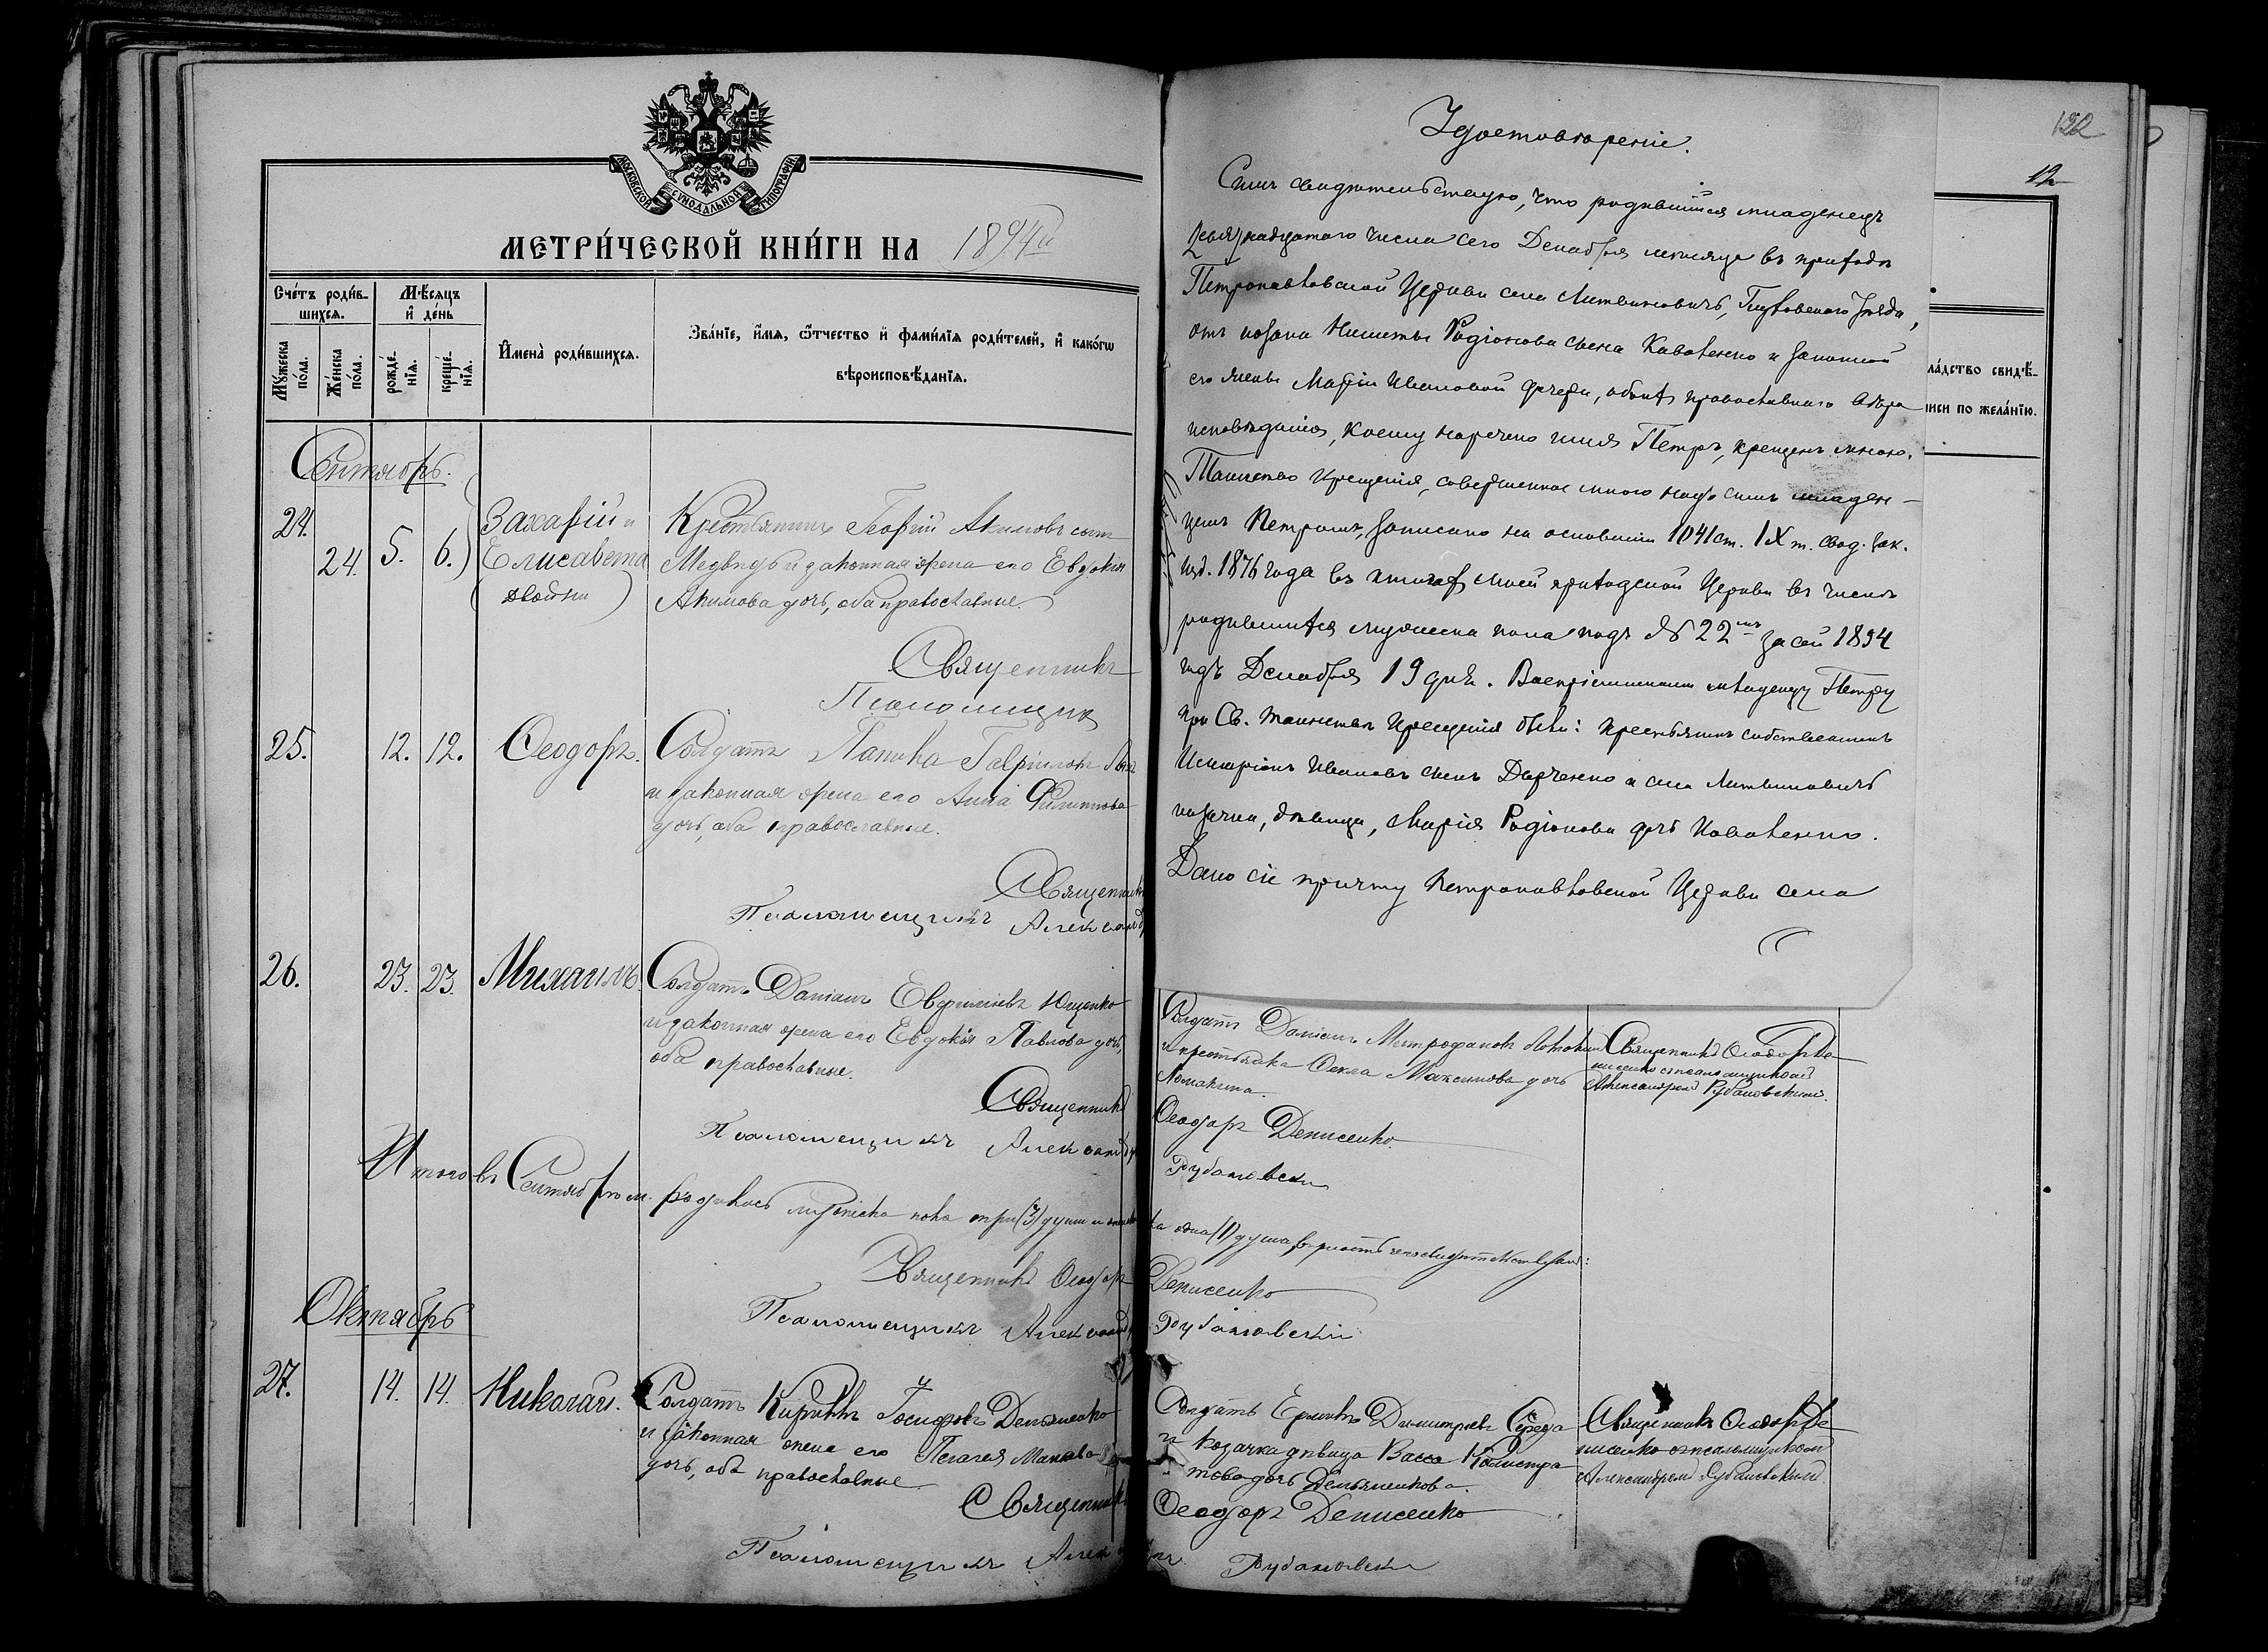 МОСКОВСКОЙ СѴНОДАЛЬНОЙ ТИПОГРАФІИ
МЕТРИ́ЧЕСКОЙ КНИ́ГИ НА 1894й
Сче́тъ роди́в-
шихсѧ.
Мꙋ́жеска
по́ла.
Же́нска
по́ла.
Мѣ́сѧцъ
и҆ де́нь
рожде́-
нїѧ.
креще́-
нїѧ.
И҆мена̀ роди́вшихсѧ.
Зва́нїе, и҆́мѧ, ѻ҆́тчество и҆ фами́лїѧ роди́телей, и҆ како́гѡ
вѣроисповѣ́данїѧ.
Сентябрь.
24.
24.
5.
6.
Захарій и
Елисавета
двойни
Крестьянинъ Георгій Акимовъ сынъ
Медвѣдь и законная жена его Евдокія
Акимова дочь, оба православные.
Священникъ
Псаломщикъ
25.
12. 12.
Ѳеодоръ.
Солдатъ Гавріиловъ
и законная жена его Анна Филиппова
дочь, оба православные.
Священникъ
Псаломщикъ Александръ
26.
23. 23.
Михаилъ.
Солдатъ Даніилъ Ющенко
и законная жена его Евдокія Павлова дочь,
оба православные.
Священникъ
Псаломщикъ Александръ
Итого въ Сентябрѣ м. родилось мужеска пола три (3) души и женска
Священникъ Ѳеодоръ
Псаломщикъ Александръ
Октябрь
27.
14. 14.
Николай.
Солдатъ Кириллъ Іосифовъ Демьяненко
и законная жена его Пелагея
дочь, оба православные
Священникъ
Псаломщикъ Александръ
122
12
Удостовѣреніе.
Симъ свидѣтельствую, что родившійся младенецъ
девятнадцатаго числа сего Декабря мѣсяца въ приходѣ
Петропавловской Церкви села Литвиновичъ, Глуховскаго уѣзда,
отъ козака Никиты Родіонова сына Коваленко и законной
его жены Маріи Ивановой дочери, обоихъ православнаго вѣро
исповѣданія, коему наречено имя Петръ, крещенъ мною.
Таинство крещенія, совершенное мною надъ симъ младен-
цемъ Петромъ, записано на основаніи 1041 ст. IX т. Свод. Зак.
изд. 1876 года въ книгахъ моей приходской Церкви въ числѣ
родившихся мужеска пола подъ № 22мъ за сей 1894
годъ Декабря 19 дня. Воспріемниками младенцу Петру
при Св. таинствѣ крещенія были: крестьянинъ собственникъ
Иванов сынъ и села Литвиновичъ
козачка, дѣвица, Марія Родіонова дочь Коваленко.
Дано сіе причту Петропавловской Церкви села
ла́дство свидѣ́-
писи по жела́нїю.
Солдатъ Даніилъ Митрофановъ
и крестьянка Ѳекла Максимова дочь
Ломакина.
Священникъ Ѳеодоръ Де-
нисенко съ псаломщикомъ
Александромъ Рубановскимъ.
Ѳеодоръ Денисенко
Рубановскій
ка одна (1) душа, вѣрность чего свидѣтельствуютъ:
Денисенко
Рубановскій
Солдатъ Димитріевъ Середа
и козачка дѣвица Васса Калистра
това дочь Демьяненкова.
Священникъ Ѳеодоръ Де
нисенко съ псаломщикомъ
Александромъ Рубановскимъ.
Ѳеодоръ Денисенко
Рубановскій